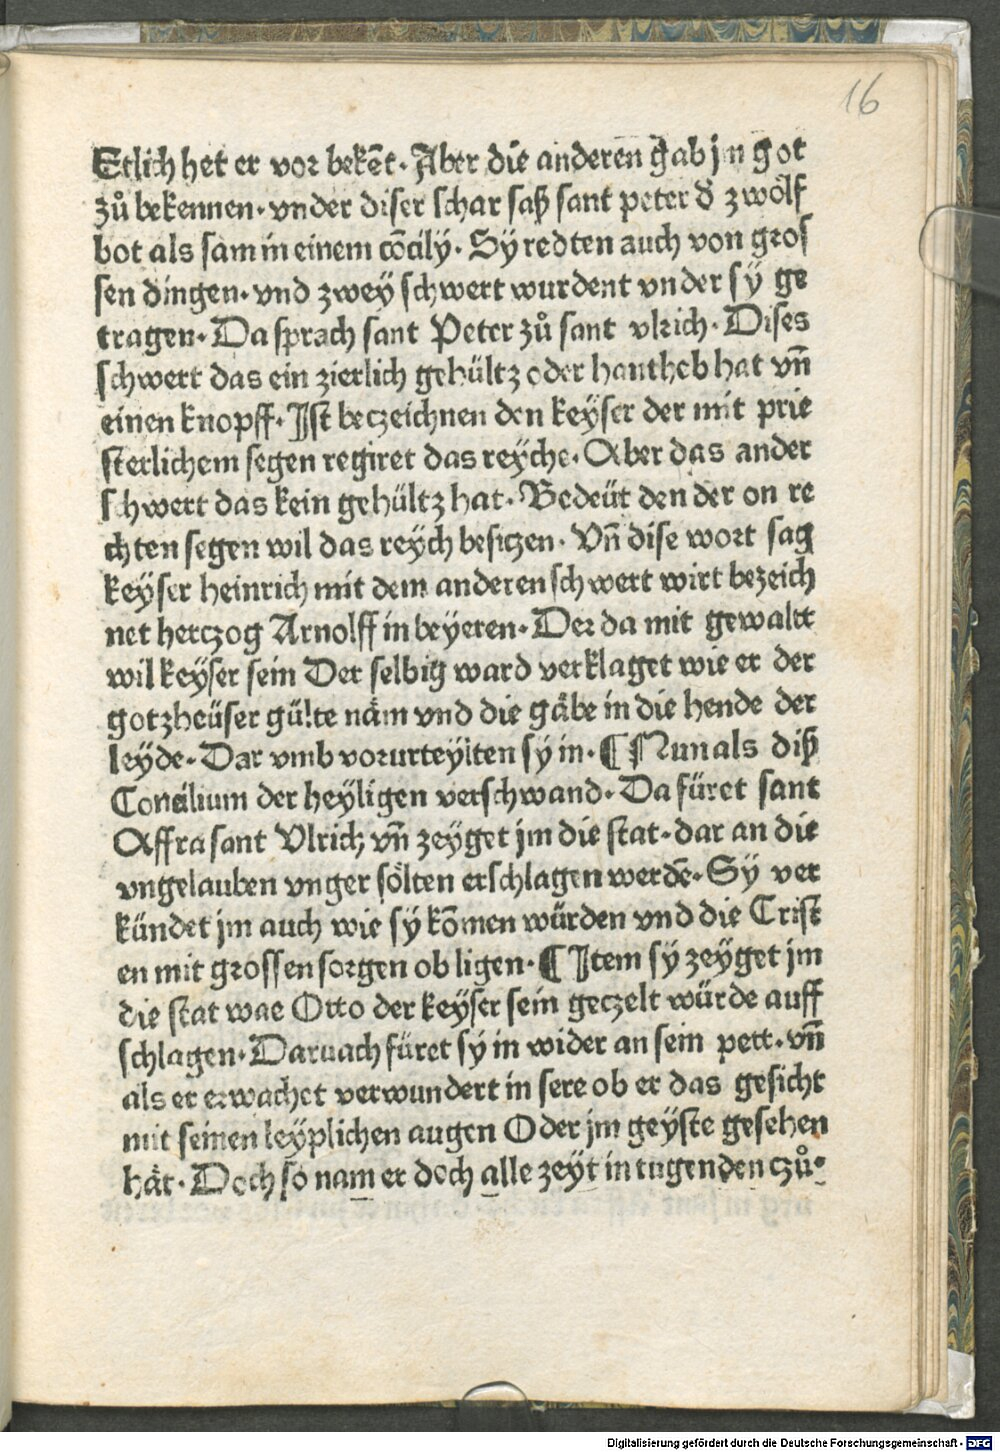 16
Etlich het er vor bekēt. Aber die anderen gab jm got
zů bekennen. vnder diser schar saß sant peter d̄ zwölf
bot als sam in einem cōcily. Sy redten auch von gros
sen dingen. vnd zwey schwert wurdent vnder sy ge
tragen. Da sprach sant Peter zů sant vlrich. Dises
schwert das ein zierlich gehültz oder hantheb hat vn̄
einen knopff. Ist beczeichnen den keyser der mit prie
sterlichem segen regiret das reyche. Aber das ander
schwert das kein gehültz hat. Bedeüt den der on re
chten segen wil das reych besiczen. Vn̄ dise wort sag
keyser heinrich mit dem anderen schwert wirt bezeich
net herczog Arnolff in beyeren. Der da mit gewaltt
wil keyser sein Der selbig ward verklaget wie er der
gotzheüser gülte näm vnd die gäbe in die hende der
leyde. Dar vmb vorurteylten sy in. ¶ Nun als diß
Concilium der heyligen verschwand. Da füret sant
Affra sant Vlrich vn̄ zeyget jm die stat. dar an die
vngelauben vnger sölten erschlagen werdē. Sy ver
kündet jm auch wie sy kōmen würden vnd die Crist
en mit grossen sorgen ob ligen. ¶ Item sy zeyget jm
die stat wae Otto der keyser sein geczelt würde auff
schlagen. Daruach füret sy in wider an sein pett. vn̄
als er erwachet verwundert in sere ob er das gesicht
mit seinen leyplichen augen Oder jm geyste gesehen
hät. Doch so nam er doch alle zeyt in tugenden czů.
Digitalisierung gefördert durch die Deutsche Forschungsgemeinschaft - DFG